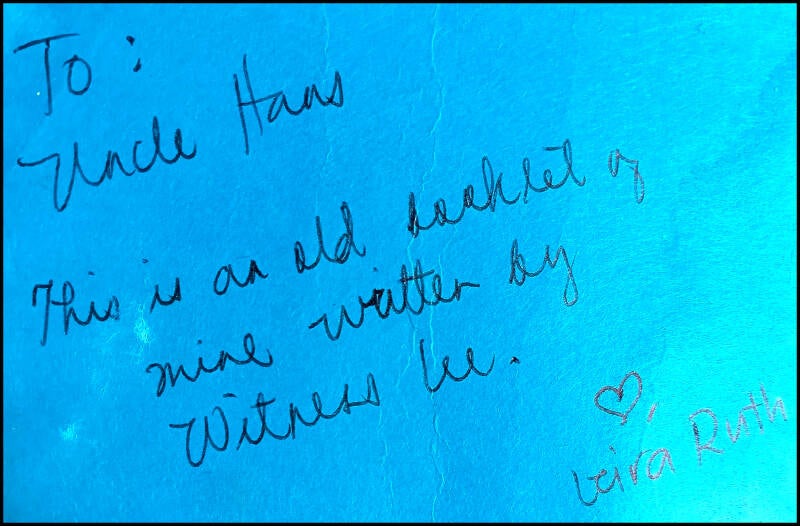 To:
Uncle Hans
This is an old booklet of
mine written by
Witness Lee.
♡, Leira Ruth